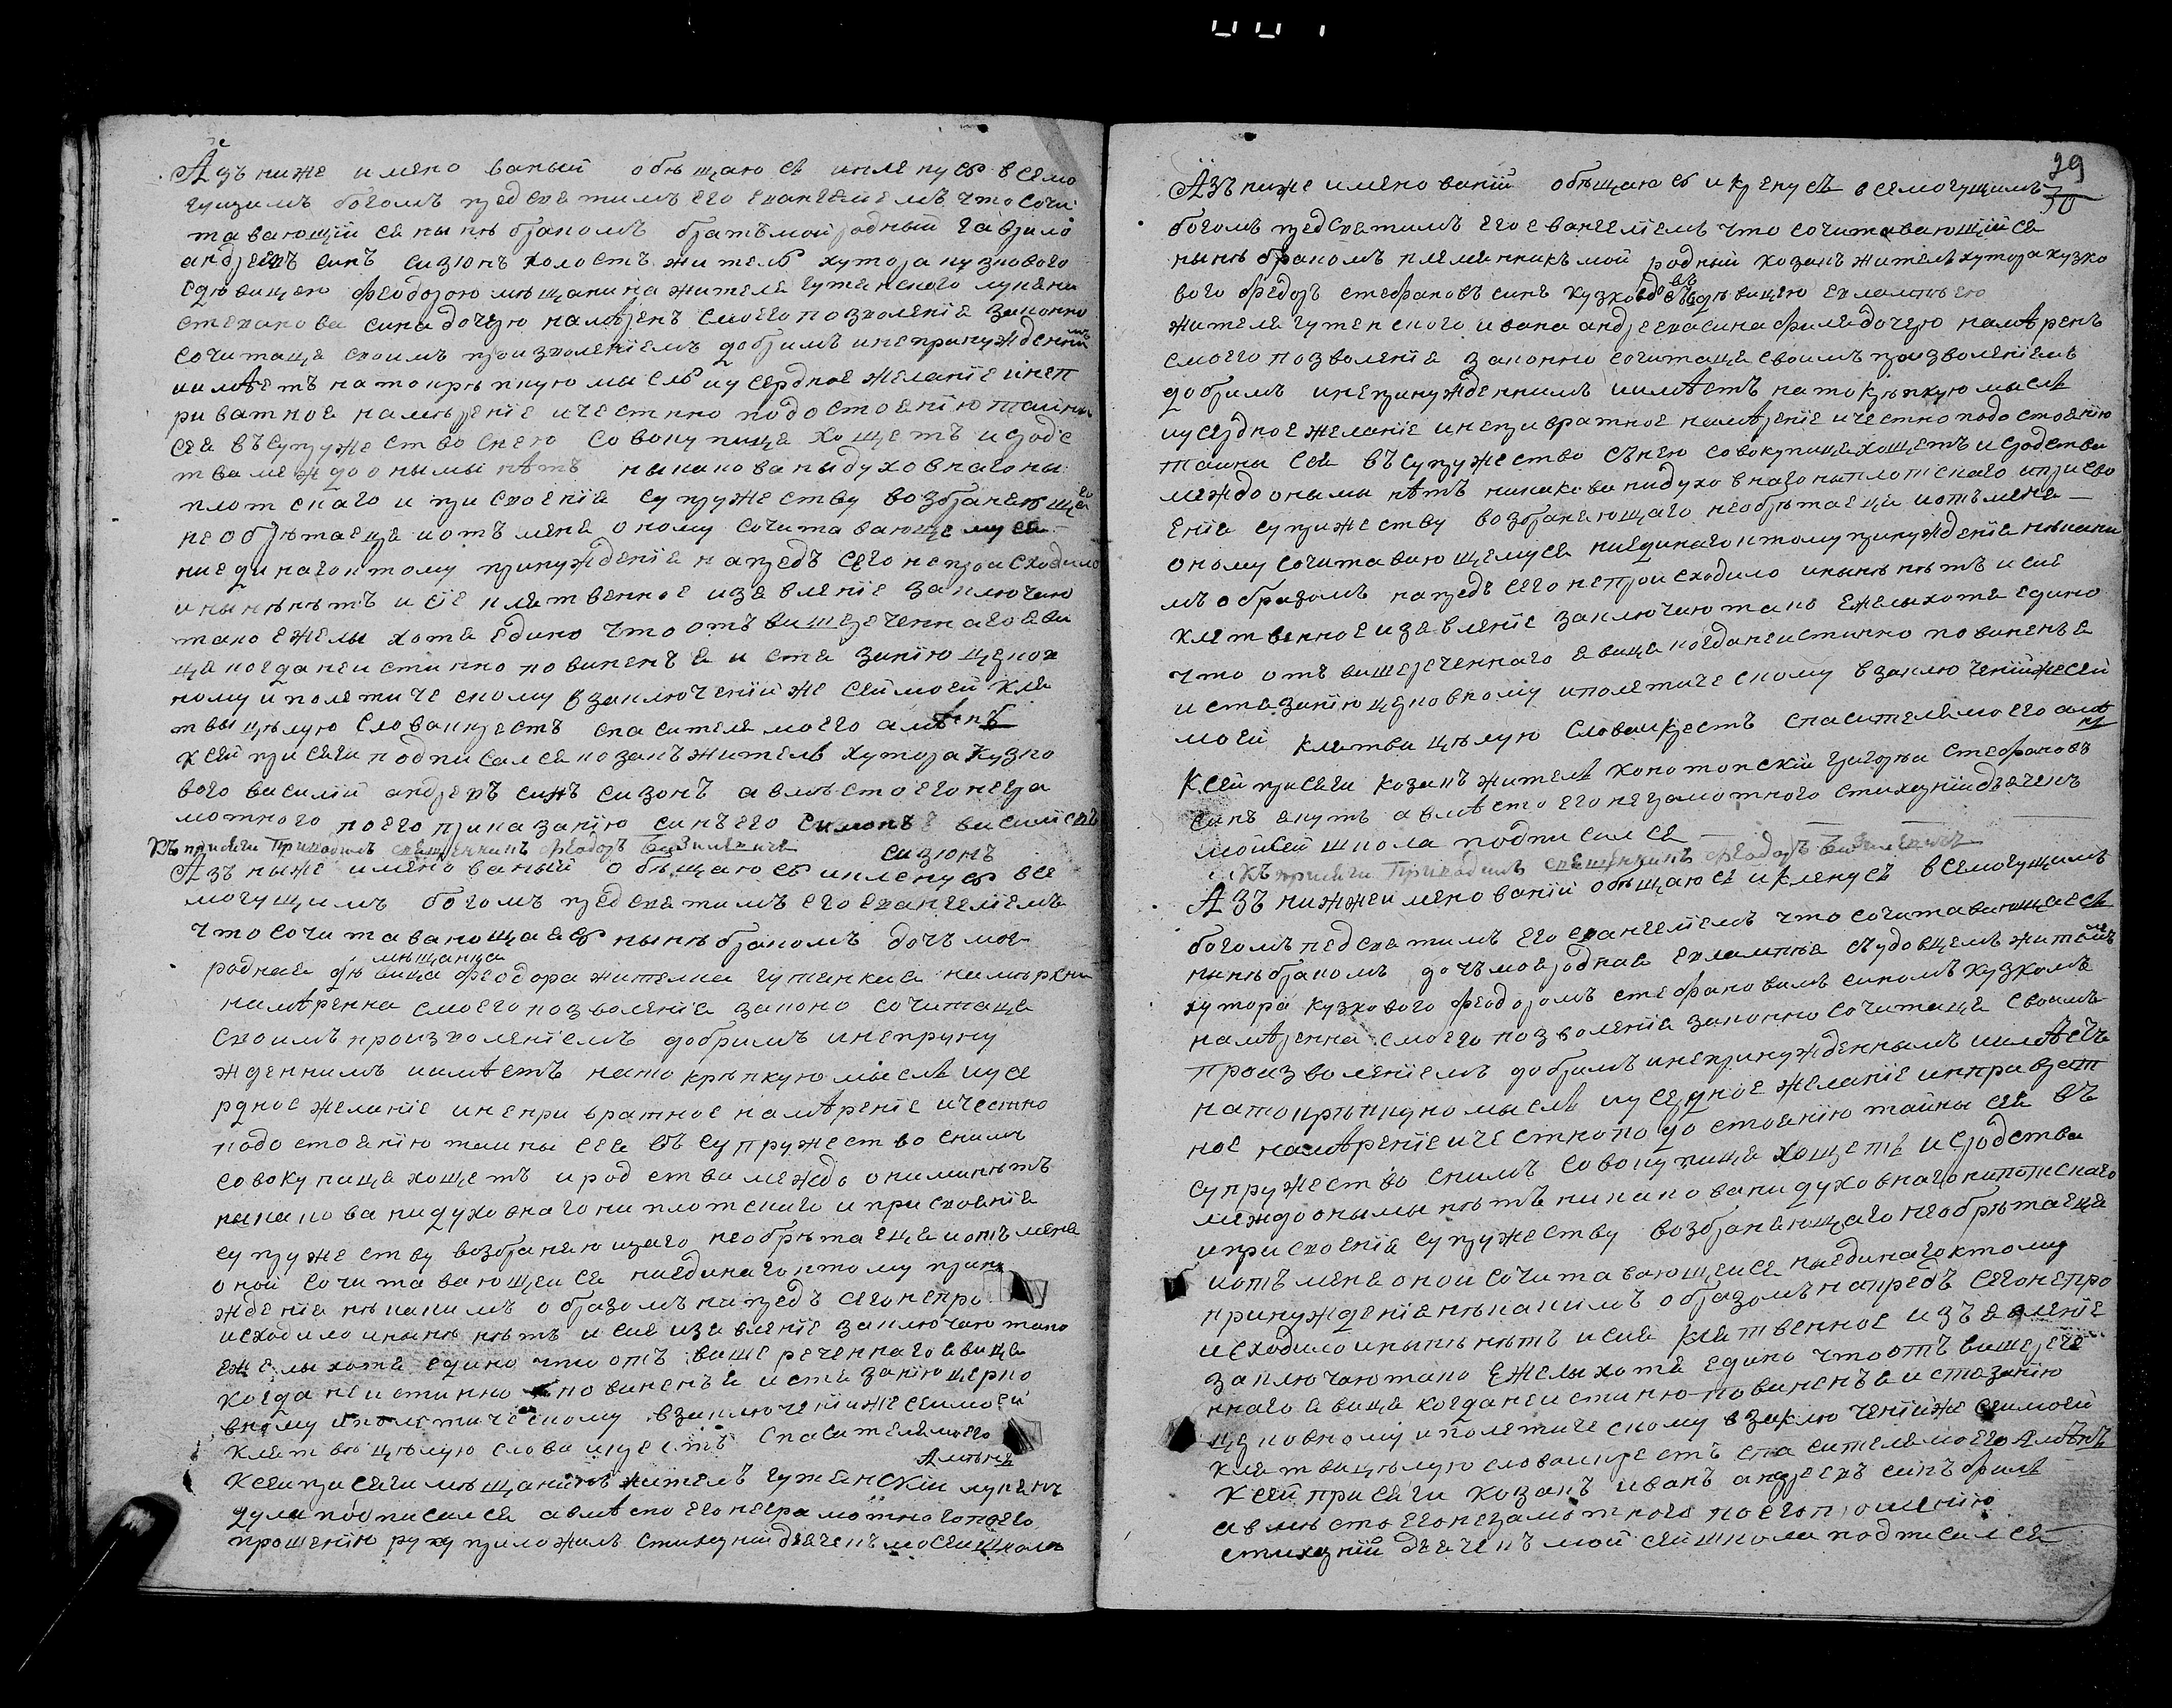 Азъ ниже имено ваный обѣщаюсь и кленусь всемо
гущимъ богомъ предсвятимъ его евангелиемъ что сочи
тавающийся нынѣ бракомъ братъ мой родный гаврило
андреевъ синъ сизюнъ холостъ житель хутора кузкового
здѣвицею феодорою мѣщанина жителя гутянского лукяна
степанова сина дочерю намѣренъ смоего позволения законно
сочитаця своимъ произволениемъ добримъ и непринужденнимъ
и имѣетъ на то крѣпкую мысль иусердное желание инеп
ривратное намѣрение ичестнно подостоянию тайны
сея въ супружество снею совокупиця хощетъ исродс
тва междо онымы нѣтъ ныкакова ныдуховнаго ны
плотскаго и присвоения супружеству возбраняющаго
необрѣтаеця иотъ меня оному сочитавающемуся
ниединаго ктому принуждения напредъ сего непроисходило
инынѣ нѣтъ и сіе клятвенное изявление заключаю
тако ежелы хотя едино что отъ вишереченнаго яви
ця когда неистинно повиненъ я истязанію церков
ному иполитическому взаключеніи же сей моей кля
твы цѣлую слова икрестъ спасителя моего аминь
Ксей присяги подписался козакъ житель хутора Кузко
вого василий андреевъ синъ сизонъ авмѣсто его негра
мотного поего приказанію синъ его симонъ василіевъ
сизюнъ
Къ присяги Приводилъ священникъ феодоръ Базилевичъ
Азъ ныже именованый обѣщаюсь икленусь все
могущимъ богомъ предсвятимъ его евангелиемъ
что сочитавающаясь нынѣ бракомъ дочъ моя
мѣщанца
родная дѣвица феодора жителка гутянкая намѣрена
намѣренна смоего позволения законо сочитаця
своимъ произволениемъ добримъ инеприну
жденнимъ иимѣетъ нато крѣпкую мысль иусе
рдное желание инепривратное намѣрение ичестно
подостоянию тайны сея въ супружество снимъ
совокупиця хощетъ ирод ства междо онимы нѣтъ
ныкакова нидуховнаго ни плотскаго и присвоения
супружеству возбраняющаго необрѣтаеця иотъ меня
оной сочитавающейся ниединаго ктому прину
ждения нѣкакимъ образомъ напредъ сего непро
исходило инынѣ нѣтъ и сие изявление заключаю тако
ежелы хотя едино что отъ више реченнаго явиця
когда неистинно повиненъ я истязанію церко
вному иполитическому взаключении же сей моей
клятвы цѣлую слова икрестъ спасителя моего
Аминь
Ксей присяги мѣщанинъ житель гутянский лукянъ
дула подписался авмѣсто его неграмотного поего
прошению руку приложилъ стихарний дяченъ мосей школа
29
30
Азъ ниже именований обѣщаюсь и кленусь всемогущимъ
богомъ предсвятимъ его евангелиемъ что сочитавающийся
нынѣ бракомъ племинникъ мой родный козакъ житель хутора кузко
вого федоръ стефановъ синъ кузко вдовъ съ дѣвицею евлампиею
жителя гутенского ивана андреева сина филя дочерю намѣренъ
смоего позволения законно сочитаця своимъ произволениемъ
добримъ инепринужденнимъ иимѣетъ нато крѣпкую мысль
иусердное желание инепривратное намѣрение ичестно подостоянию
тайны сея въ супружество сънею совокупиця хощетъ и сродства
междо онамы нѣтъ никакова нидуховнаго ниплотскаго иприсво
ения супружеству возбраняющаго необрѣтаеця иотъ меня
оному сочитавающемуся ниединаго ктому принуждения нѣкаки
мъ образомъ напредъ сего непроисходило инынѣ нѣтъ и сие
клятвенное изявление заключаю тако ежелы хотя едино
что отъ вишереченнаго явиця когда неистинно повиненъ я
истязанию церковному иполитическому взаключений же сей
моей клятви цѣлую слова икрестъ спасителя моего аминь
Ксей присяги козакъ житель конотопский григорий стефановъ
синъ авмѣсто его неграмотного стихарний дяченъ
мойсей школа подписался
Къ присяги Приводилъ священникъ феодоръ Базилевичъ
Азъ нижжеименований обѣщаюсь икленусь всемогущимъ
богомъ предсвятимъ его евангелиемъ что сочитавающаясь
нынѣ бракомъ дочъ моя родная евлампия съ удовцемъ жителемъ
хутора кузкового феодоромъ стефановимъ синомъ кузкомъ
намѣренна смоего позволения законно сочитаця своимъ
произволениемъ добримъ инепринужденнымъ иимѣетъ
нато крѣпкую мысль иусердное желание инеправат
ное намѣрение ичестно подостоянию тайны сея въ
супружество снимъ совокупиця хощетъ исродства
междо онымы нѣтъ никакова нидуховнаго ниплотскаго
иприсвоения супружеству возбраняющаго необрѣтаеця
иотъ меня оной сочитавающейся ниединаго ктому
принуждения нѣкакимъ образомъ напредъ сего непро
исходило инынѣ нѣтъ исия клятвенное изъявление
заключаю тако ежелы хотя едино что отъ вишерече
ннаго явиця когда неистинно повиненъ я истязанию
церковному иполитическому взаключений же сей моей
клятви цѣлую слова икрестъ спасителя моего Аминь
Ксей присяги козакъ иванъ андреевъ синъ филь
авмѣсто его неграмотного поего прошению
стихарний дяченъ мойсей школа подписался